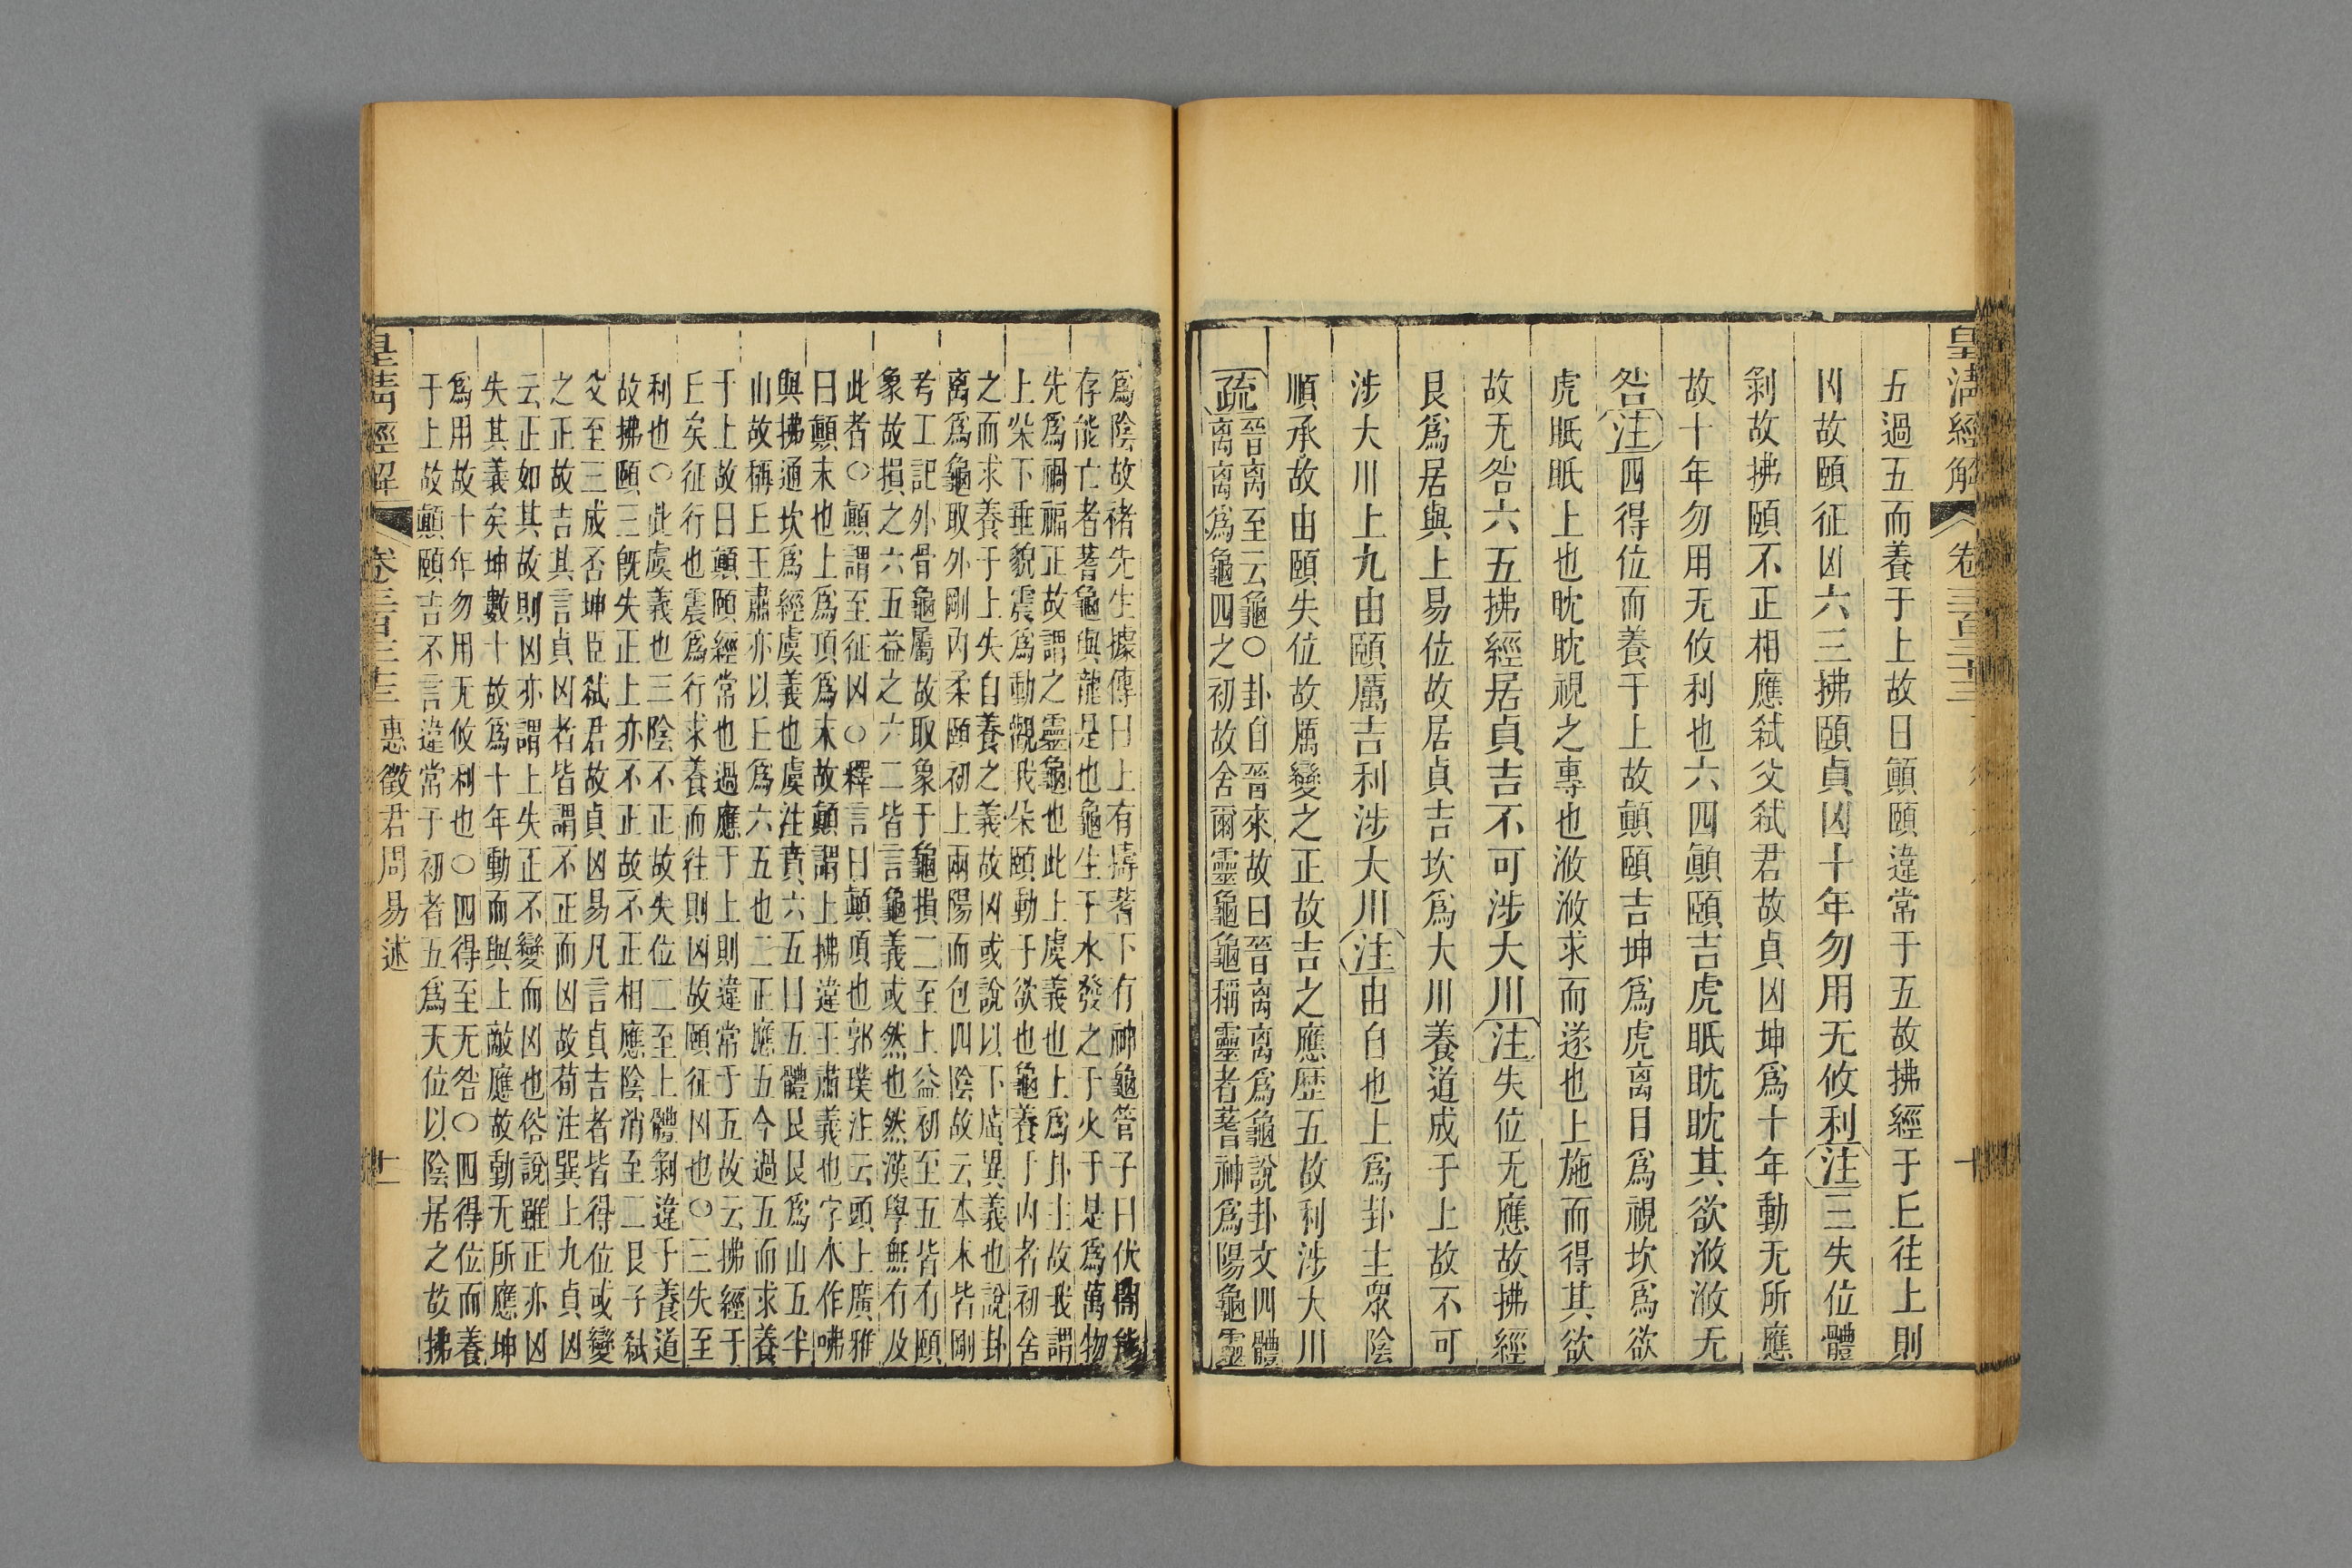 皇清經解 卷三百三十三 十
五過五而養于上故曰顚頤違常于五故拂經于丘往上則
凶故頤征凶六三拂頤貞凶十年勿用无攸利注三失位體
剝故拂頤不正相應弒父弒君故貞凶坤爲十年動无所應
故十年勿用无攸利也六四顚頤吉虎眂眈眈其欲浟浟无
咎注四得位而養于上故顚頤吉坤爲虎离目爲視坎爲欲
虎眂眂上也眈眈視之專也浟浟求而遂也上施而得其欲
故无咎六五拂經居貞吉不可涉大川注失位无應故拂經
艮爲居與上易位故居貞吉坎爲大川養道成于上故不可
涉大川上九由頤厲吉利涉大川注由自也上爲卦主眾陰
順承故由頤失位故厲變之正故吉之應歷五故利涉大川
疏晉离至云龜○卦自晉來故曰晉离离爲龜說卦文四體
离离爲龜四之初故舍爾靈龜龜稱靈者蓍神爲陽龜靈
爲陰故褚先生據傳曰上有擣蓍下有神龜管子曰伏闇能
存能亡者蓍龜與龍是也龜生于水發之于火于是爲萬物
先爲禍福正故謂之靈龜也此上虞義也上爲卦主故我謂
上朵下垂貌震爲動觀我朵頤動于欲也龜養于内者初舍
之而求養于上失自養之義故凶或說以下廣異義也說卦
离爲龜取外剛内柔頤初上兩陽而包四陰故云本末皆剛
考工記外骨龜屬故取象于龜損二至上益初至五皆有頤
象故損之六五益之六二皆言龜義或然也然漢學無有及
此者○顚謂至征凶○釋言曰顚頂也郭璞注云頭上廣雅
曰顚末也上爲頂爲末故顚謂上拂違王肅義也字本作咈
與拂通坎爲經虞義也虞注賁六五曰五體艮艮爲山五半
山故稱丘王肅亦以丘爲六五也二正應五今過五而求養
于上故曰顚頤經常也過應于上則違常于五故云拂經于
丘矣征行也震爲行求養而往則凶故頤征凶也○三失至
利也○此虞義也三陰不正故失位二至上體剝違于養道
故拂頤三旣失正上亦不正故不正相應陰消至二艮子弒
父至三成否坤臣弒君故貞凶易凡言貞吉者皆得位或變
之正故吉其言貞凶者皆謂不正而凶故荀注巽上九貞凶
云正如其故則凶亦謂上失正不變而凶也俗說雖正亦凶
失其義矣坤數十故爲十年動而與上敵應故動无所應坤
爲用故十年勿用无攸利也○四得至无咎○四得位而養
于上故顚頤吉不言違常于初者五爲天位以陰居之故拂
皇清經解 卷三百三十三 惠徵君周易述 十一